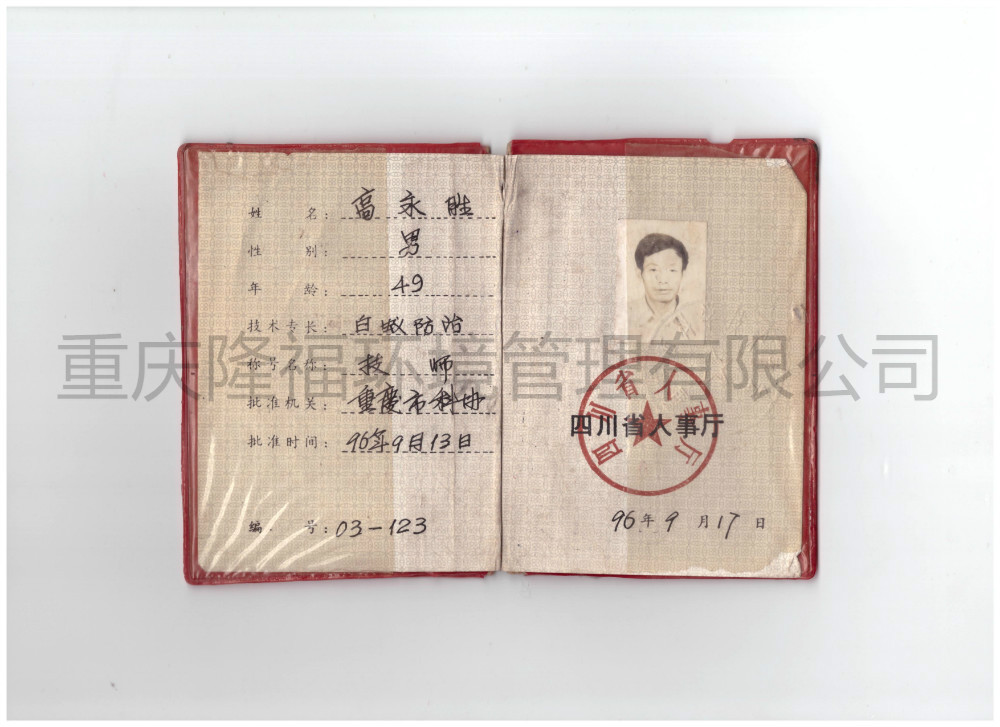 姓 名：高永胜
性 别：男
年 龄：49
技术专长：白蚁防治
称号名称：技 师
批准机关：重庆市科协
批准时间：96年9月13日
编 号：03-123
四川省人事厅
四川省人事厅
96年9月17日
重庆隆福环境管理有限公司